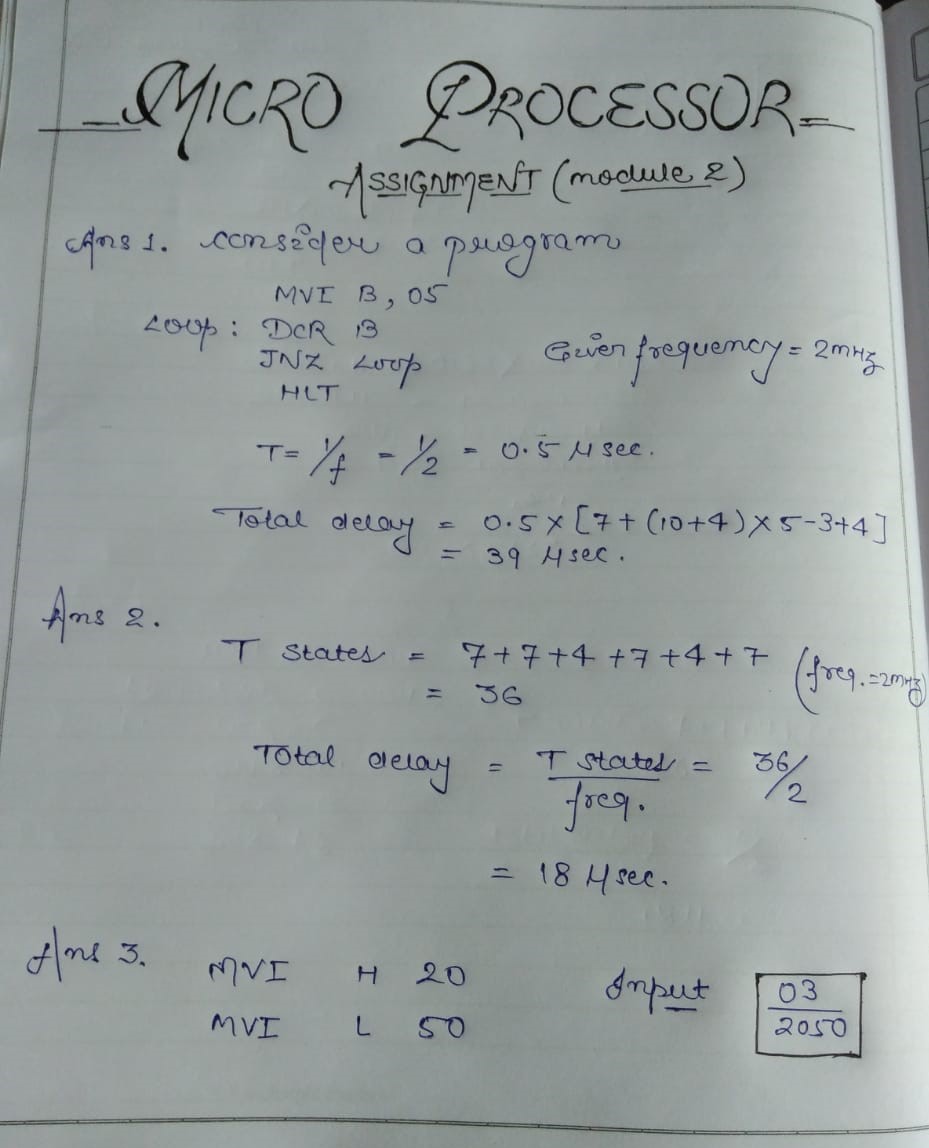 MICRO PROCESSOR
ASSIGNMENT (module 2)
Ans 1. consider a program
MVI B, 05
Loop : DCR B
JNZ Loop
HLT
Given frequency = 2mHz
T = 1/f = 1/2 = 0.5 μsec.
Total delay = 0.5 x [7 + (10+4) x 5-3+4]
= 39 μsec.
Ans 2.
T states = 7+7+4+7+4+7 (freq. = 2mHz)
= 36
Total delay = T states / freq. = 36/2
= 18 μsec.
Ans 3.
MVI H 20
MVI L 50
Input
03
2050